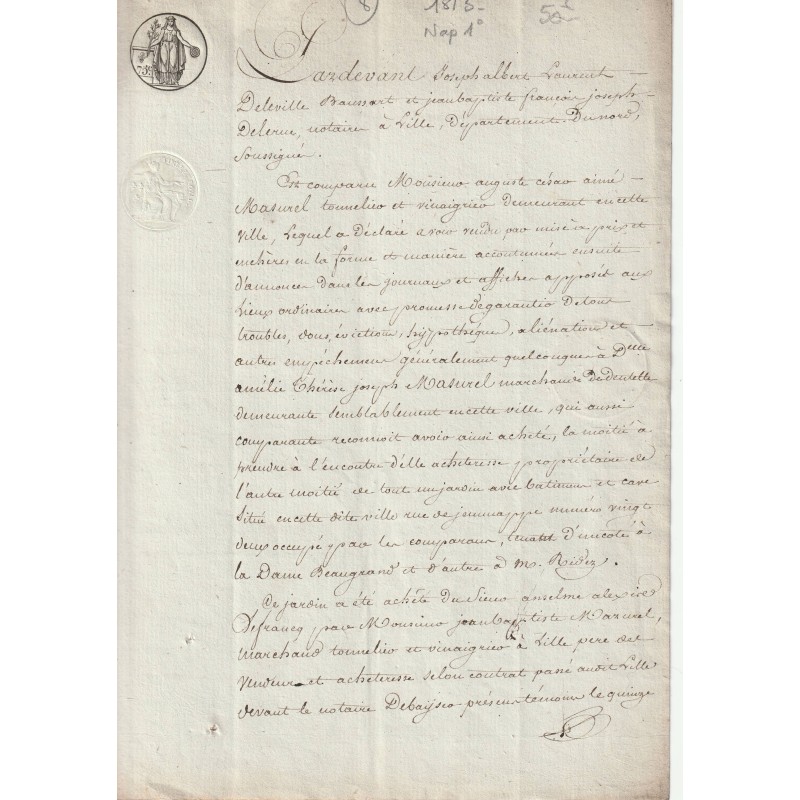 8 1813 - 50
Nap 1°
75c
Pardevant Joseph albert Laurent
Deleville Baussart et jeanbaptiste françois joseph
Delerue, notaires à Lille, Département Du nord,
Soussignés.
Est comparu Monsieur auguste césar aimé
Masurel tonnelier et vinaigrier demeurant en cette
ville, Lequel a Déclaré avoir vendu par mise à prix et
enchères en la forme et manière accoutumées ensuite
d'annonces dans les journaux et affiches apposés aux
Lieux ordinaires avec promesse de garantie de tous
troubles, dons, évictions, hyppothèques, aliénations et
autres empêchemens généralement quelconques à Delle
amélie Thérèse joseph Masurel marchande de dentelle
demeurante semblablement en cette ville, qui aussi
comparante reconnoit avoir ainsi acheté, la moitié à
prendre à l'encontre d'elle acheteresse propriétaire de
l'autre moitié de tout un jardin avec batimens et cave
situé en cette dite ville rue de jemmappe numéro vingt
deux occupé par les comparans, tenant d'un coté à
la Dame Beaugrand et d'autre à M. Ridez.
Ce jardin a été acheté du Sieur anselme alexis
Defrancq par Monsieur jean baptiste Mazurel,
marchand tonnelier et vinaigrier à Lille pere des
vendeur et acheteresse selon contrat passé audit Lille
devant le notaire présens témoins le quinze